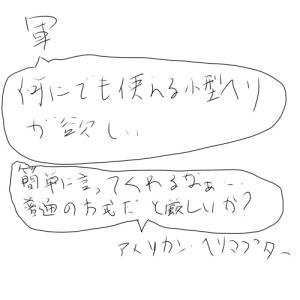 軍
何にでも使える小型ヘリ
が欲しい
簡単に言ってくれるなぁ…
普通のお式だと厳しいか?
アメリカン・ヘリコプター